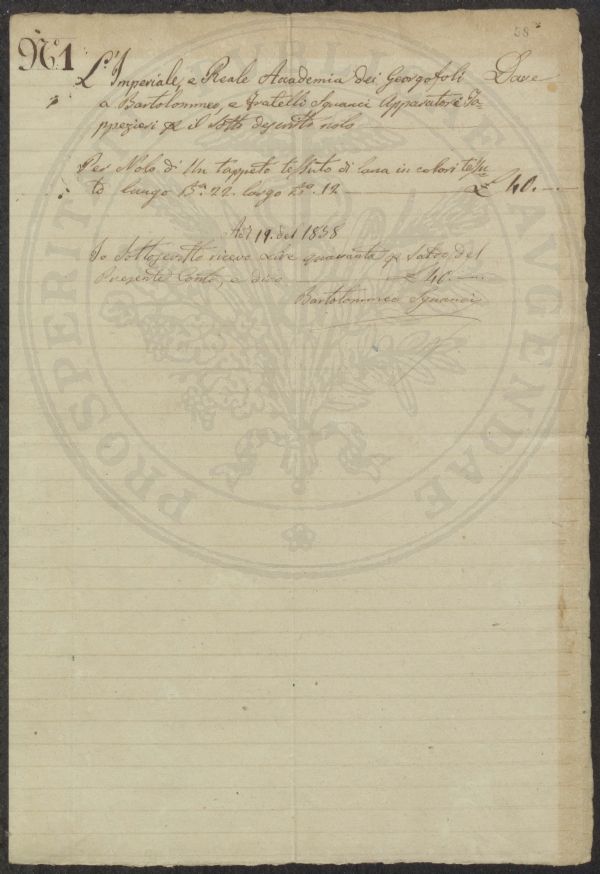 58
N.º 1
L'Imperiale, e Reale Accademia dei Georgofoli Dare
a Bartolommeo, e Fratelli Sguanci Apparatori e Ta-
ppezieri p il sotto descritto nolo
Per Nolo di Un tappeto tessuto di lana in colori
to lungo Ba 22. largo 12 £ 40.-
19. del 1838
Io Sottoscritto ricevo Lire quaranta p Saldo del
Presente Conto, e dico £ 40.
Bartolommeo Sguanci
PROSPERITATI PUBLICAE AUGENDAE